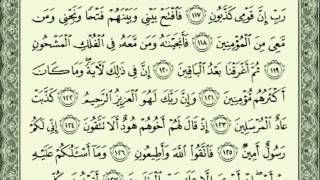 رَبِّ إِنَّ قَوْمِي كَذَّبُونِ ﴿١١٧﴾ فَافْتَحْ بَيْنِي وَبَيْنَهُمْ فَتْحًا وَنَجِّنِي وَمَن
مَّعِيَ مِنَ الْمُؤْمِنِينَ ﴿١١٨﴾ فَأَنجَيْنَاهُ وَمَن مَّعَهُ فِي الْفُلْكِ الْمَشْحُونِ
﴿١١٩﴾ ثُمَّ أَغْرَقْنَا بَعْدُ الْبَاقِينَ ﴿١٢٠﴾ إِنَّ فِي ذَٰلِكَ لَآيَةً ۖ وَمَا كَانَ
أَكْثَرُهُم مُّؤْمِنِينَ ﴿١٢١﴾ وَإِنَّ رَبَّكَ لَهُوَ الْعَزِيزُ الرَّحِيمُ ﴿١٢٢﴾ كَذَّبَتْ
عَادٌ الْمُرْسَلِينَ ﴿١٢٣﴾ إِذْ قَالَ لَهُمْ أَخُوهُمْ هُودٌ أَلَا تَتَّقُونَ ﴿١٢٤﴾ إِنِّي لَكُمْ
رَسُولٌ أَمِينٌ ﴿١٢٥﴾ فَاتَّقُوا اللَّهَ وَأَطِيعُونِ ﴿١٢٦﴾ وَمَا أَسْأَلُكُمْ عَلَيْهِ